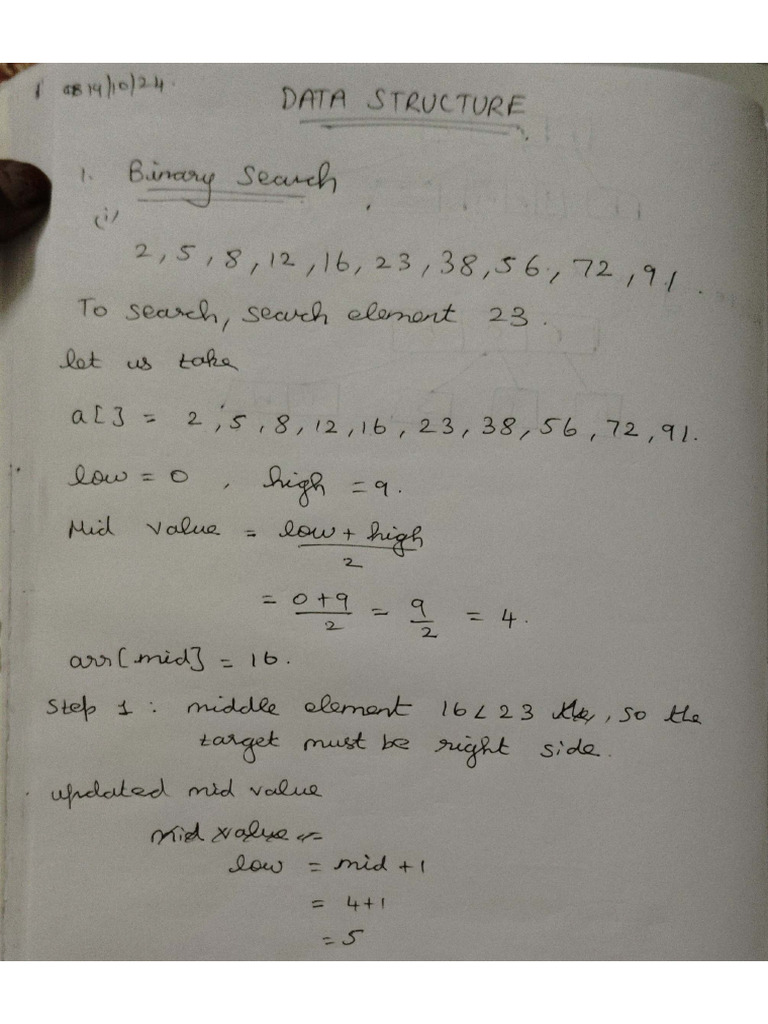 19/10/24.
DATA STRUCTURE
1. Binary Search
(i)
2, 5, 8, 12, 16, 23, 38, 56, 72, 91.
To search, search element 23.
let us take
a[] = 2, 5, 8, 12, 16, 23, 38, 56, 72, 91.
low = 0, high = 9.
Mid value = low + high
2
= 0+9 = 9 = 4.
2 2
arr[mid] = 16.
Step 1: middle element 16 < 23 the, so the
target must be right side.
updated mid value
mid value =
low = mid + 1
= 4+1
= 5